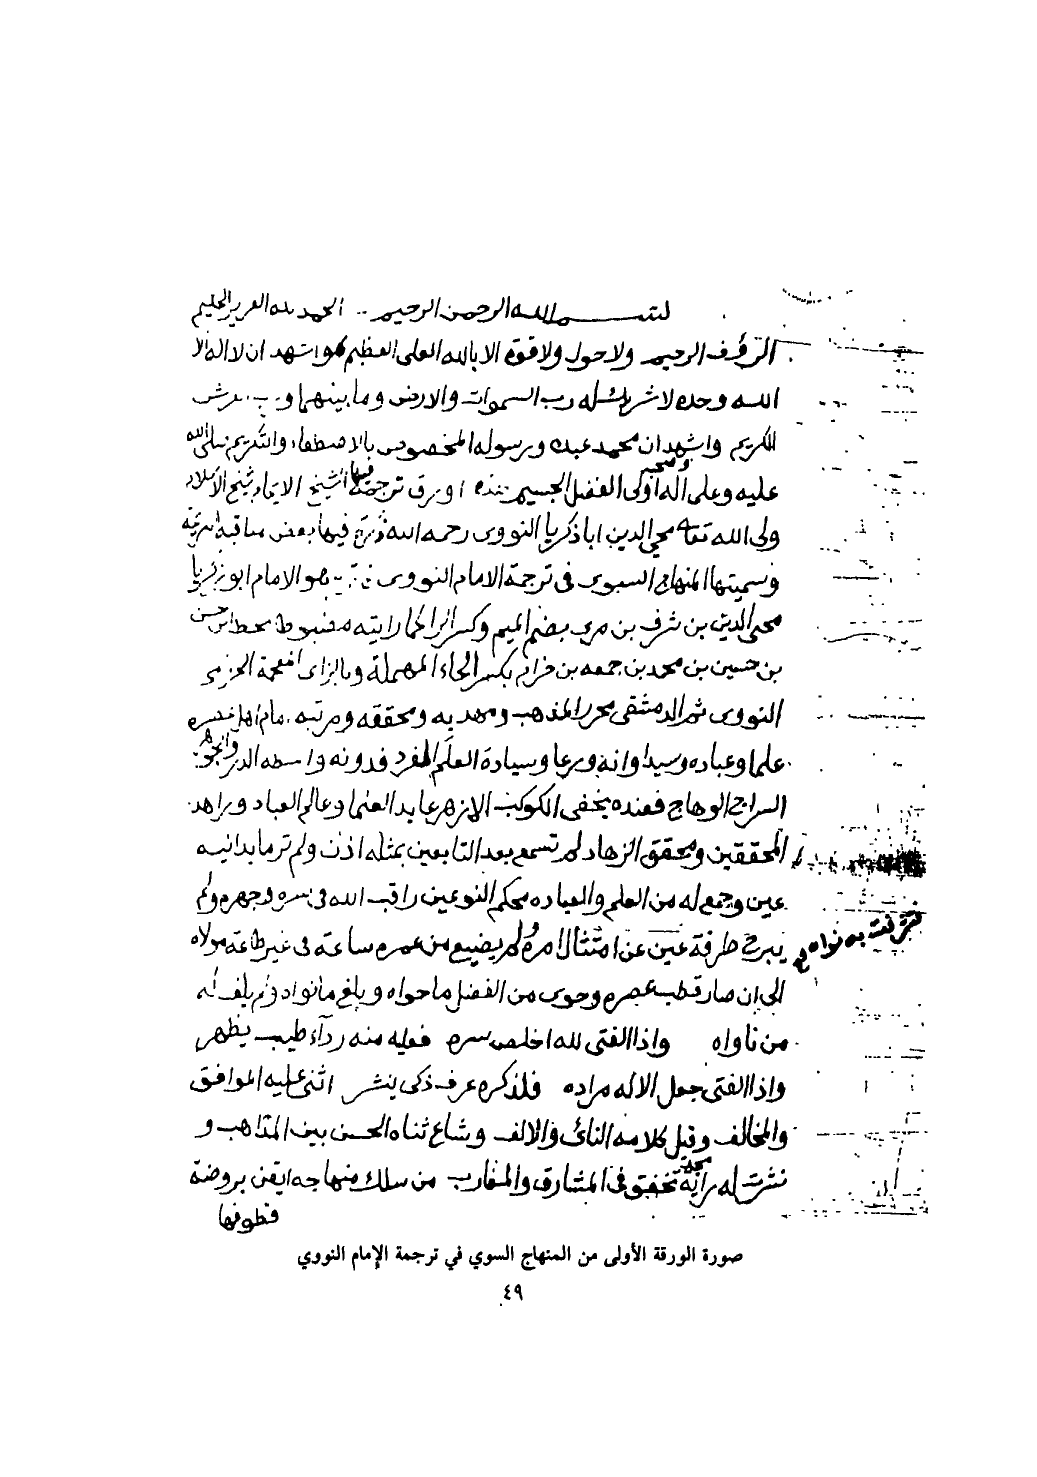 بسم الله الرحمن الرحيم .. الحمد لله العزيز الحليم
الرؤف الرحيم ولا حول ولا قوة الا بالله العلى العظيم واشهد ان لا اله الا
الله وحده لا شريك له رب السموات والارض وما بينهما
الكريم واشهد ان محمد عبده ورسوله المخصوص بالاصطفاء والتكريم صلى الله
عليه وعلى اله وصحبه اولى الفضل الجسيم هذه اوراق ترجمت فيها الشيخ الامام شيخ الاسلام
ولى الله تعالى محي الدين ابا ذكريا النووى رحمه الله فيها بعض مناقبه
وسميتها المنهاج السوى فى ترجمة الامام النووى هو الامام ابو زكريا
محي الدين بن شرف بن مرى بضم الميم وكسر الرا كما رايته مضبوطا بخط ابن حسن
بن حسين بن محمد بن جمعه بن حزام بكسر الحاء المهملة وبالزاى المعجمة الحزامى
النووى ثم الدمشقى محرر المذهب ومهذبه ومحققه ومرتبه امام اهل عصره
علما وعباده وسيد اوانه ورعا وسيادة العلم المفرد فدونه واسطه الدر والجوهر
السراج الوهاج فعنده يخفى الكوكب الازهر عابد العلما وعالم العباد وزاهد
المحققين ومحقق الزهاد لم تسمع بعد التابعين بمثله اذن ولم تر ما يدانيه
عين وجمع له من العلم والعباده محكم النوعين راقب الله فى سره وجهره ولم
يبرح طرفة عين عن امتثال امره ولم يضيع من عمره ساعة فى غير طاعة مولاه
الى ان صار قطب عصره وحوى من الفضل ما حواه وبلغ ما نواه ولم يلف له
تشرفت به نواه
من ناواه واذا الفتى لله اخلص سره فعليه منه ردآء طيب يظهر
واذا الفتى جعل الاله مراده فلذكره عرف ذكى ينشر اثنى عليه الموافق
والمخالف وقبل كلامه النائى والالف وشاع ثناه الحسن بين المذاهب و
نشرت له راية مجد تخفق فى المشارق والمغارب من سلك منهاجه ايقن بروضة
قطوفها
صورة الورقة الأولى من المنهاج السوي في ترجمة الإمام النووي
٤٩